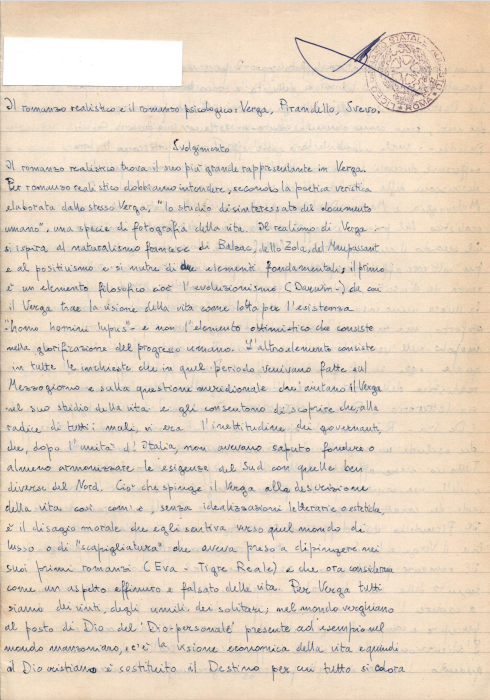 LICEO STATALE
ROMA
Il romanzo realistico e il romanzo psicologico: Verga, Pirandello, Svevo.
Svolgimento
Il romanzo realistico trova il suo più grande rappresentante in Verga.
Per romanzo realistico dobbiamo intendere, secondo la poetica veristica
elaborata dallo stesso Verga, "lo studio disinteressato del documento
umano", una specie di fotografia della vita. Il realismo di Verga
si ispira al naturalismo francese di Balzac, dello Zola, del Maupassant
e al positivismo e si nutre di due elementi fondamentali; il primo
è un elemento filosofico cioè l'evoluzionismo (Darwin-) da cui
il Verga trae la visione della vita come lotta per l'esistenza
"homo homini lupus" e non l'elemento ottimistico che consiste
nella glorificazione del progresso umano. L'altro elemento consiste
in tutte le inchieste che in quel periodo venivano fatte sul
Mezzogiorno e sulla questione meridionale che aiutano il Verga
nel suo studio della vita e gli consentono di scoprire che, alla
radice di tutti i mali, vi era l'inettitudine dei governanti,
che, dopo l'unità d'Italia, non avevano saputo fondere o
almeno armonizzare le esigenze del Sud con quelle ben
diverse del Nord. Ciò che spinge il Verga alla descrizione
della vita così com'è, senza idealizzazioni letterarie o estetiche,
è il disagio morale che egli sentiva verso quel mondo di
lusso o di "scapigliatura" che aveva preso a dipingere nei
suoi primi romanzi (Eva - Tigre Reale) e che ora considerava
come un aspetto effimero e falsato della vita. Per Verga tutti
siamo dei vinti, degli umili, dei solitari; nel mondo verghiano
al posto di Dio - del "Dio-personale" presente ad esempio nel
mondo manzoniano, c'è la visione economica della vita e quindi
al Dio cristiano è sostituito il Destino per cui tutto si colora